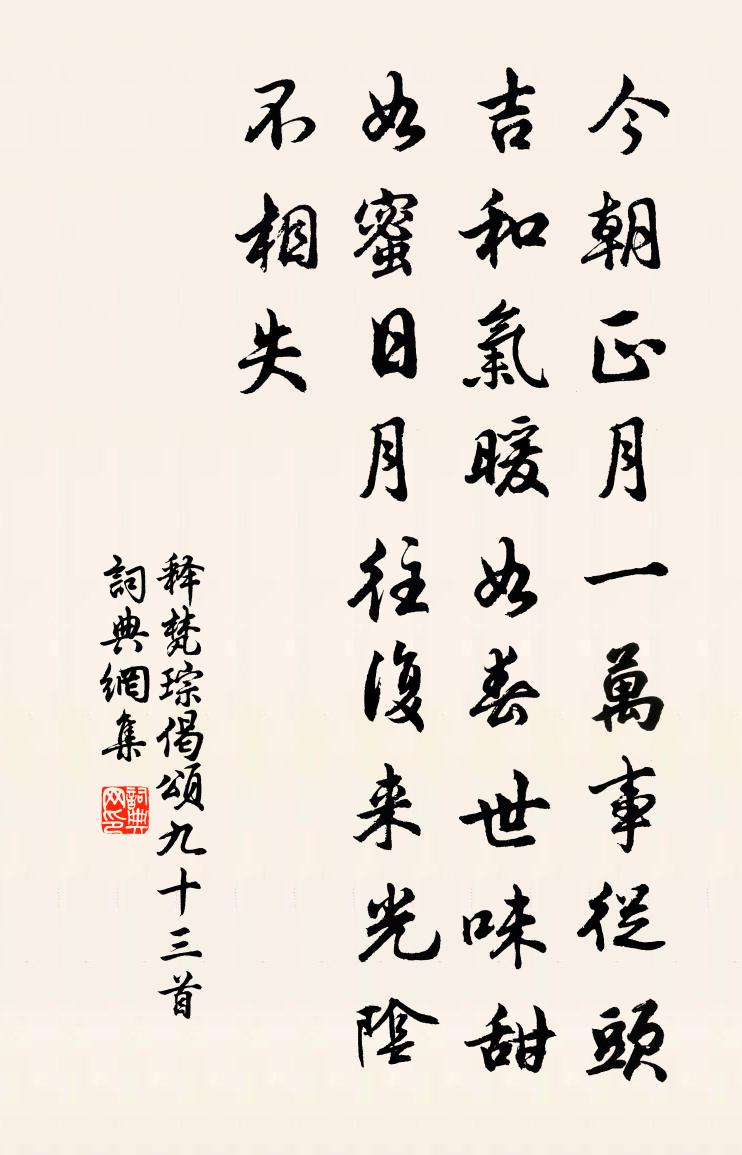 今朝正月一萬事從頭
吉和氣暖如春世味甜
如蜜日月往復来光陰
不相失
释梵琮偈頌九十三首
詞典網集
詞典网印